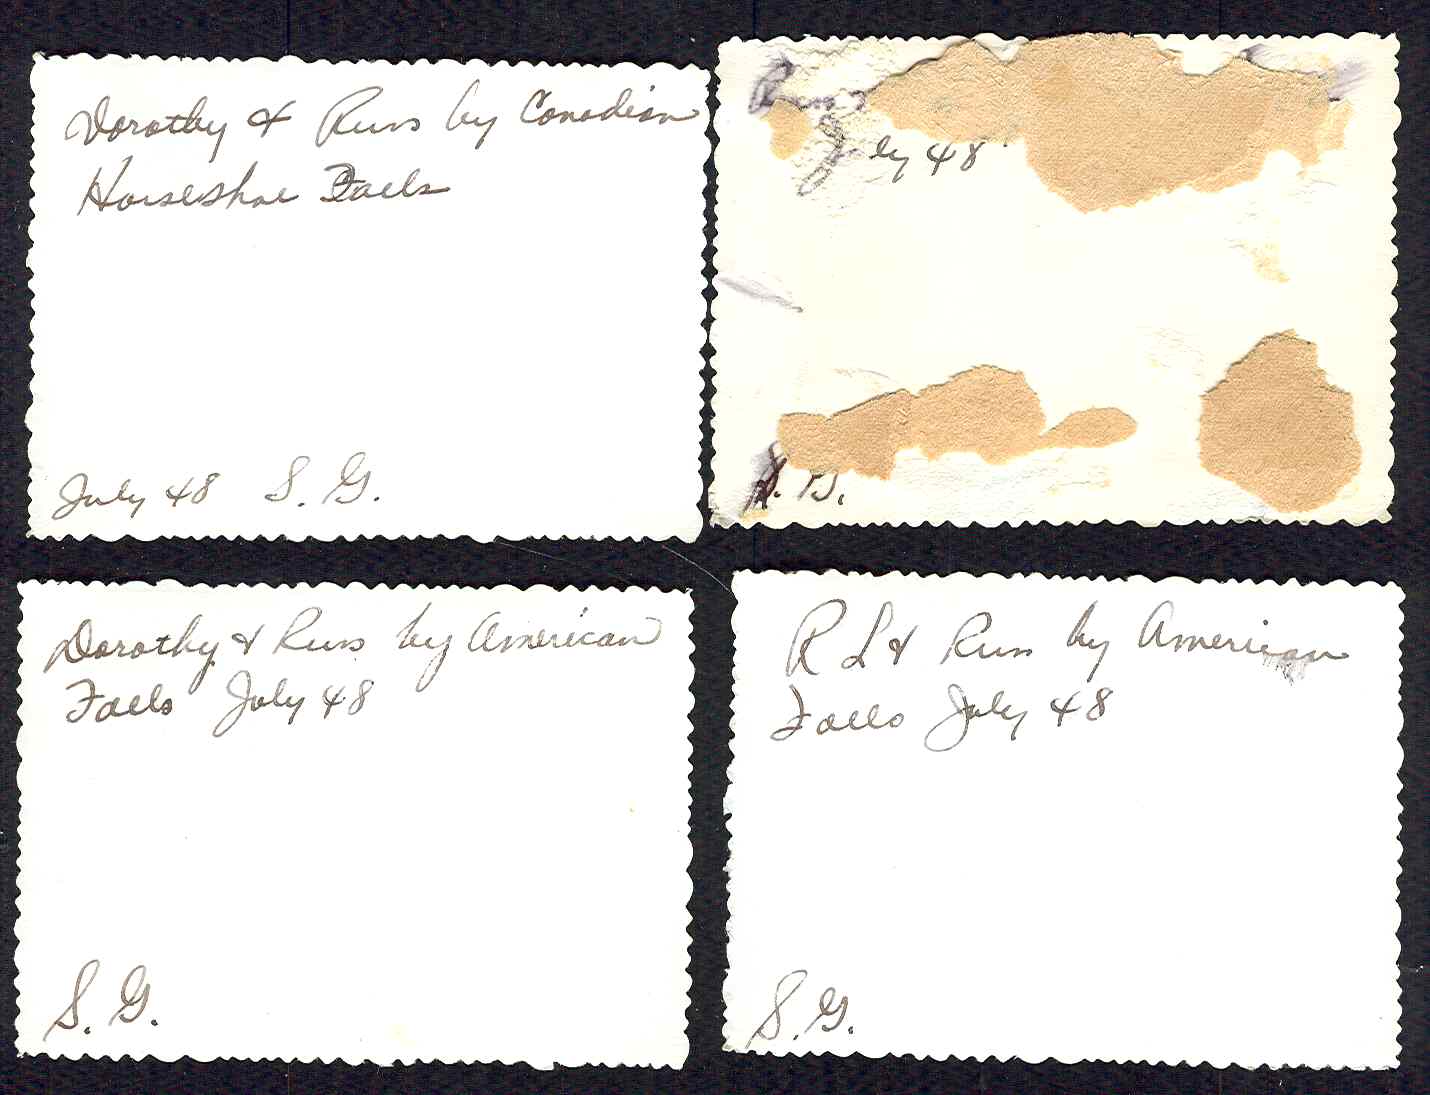 Dorothy & Russ by Canadian
Horseshoe Falls
July 48 S. G.
ly 48
S. G.
Dorothy & Russ by American
Falls July 48
S. G.
R L & Russ by American
Falls July 48
S. G.